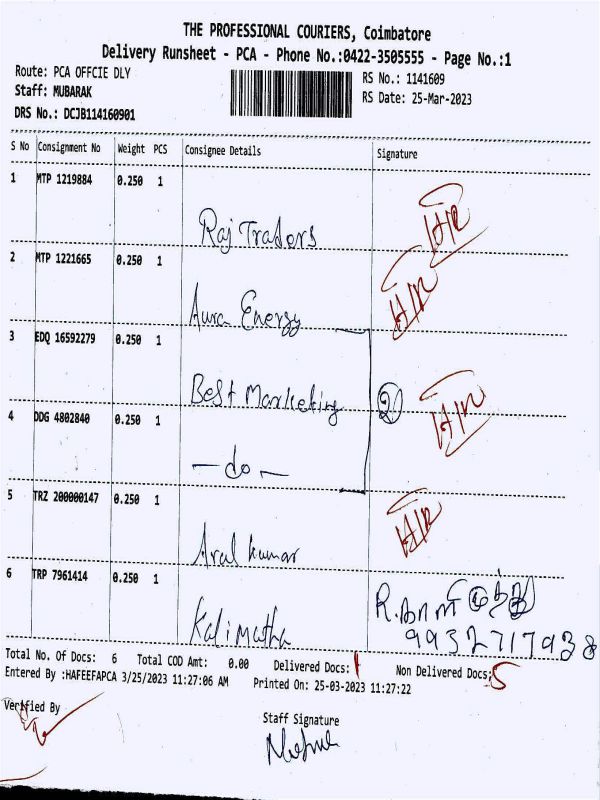 THE PROFESSIONAL COURIERS, Coimbatore
Delivery Runsheet - PCA - Phone No.:0422-3505555 - Page No.:1
Route: PCA OFFCIE DLY
RS No.: 1141609
Staff: MUBARAK
RS Date: 25-Mar-2023
DRS No.: DCJB114160901
S No Consignment No Weight PCS Consignee Details Signature
1 MTP 1219884 0.250 1
Raj Traders
2 MTP 1221665 0.250 1
Aura Energy
3 EDQ 16592279 0.250 1
Best Marketing 2
4 DDG 4802840 0.250 1
- do -
5 TRZ 200000147 0.250 1
Aral kumar
6 TRP 7961414 0.250 1
Kalimatha
9932717938
Total No. Of Docs: 6 Total COD Amt: 0.00 Delivered Docs: 1 Non Delivered Docs: 5
Entered By :HAFEEFAPCA 3/25/2023 11:27:06 AM Printed On: 25-03-2023 11:27:22
Verified By
Staff Signature